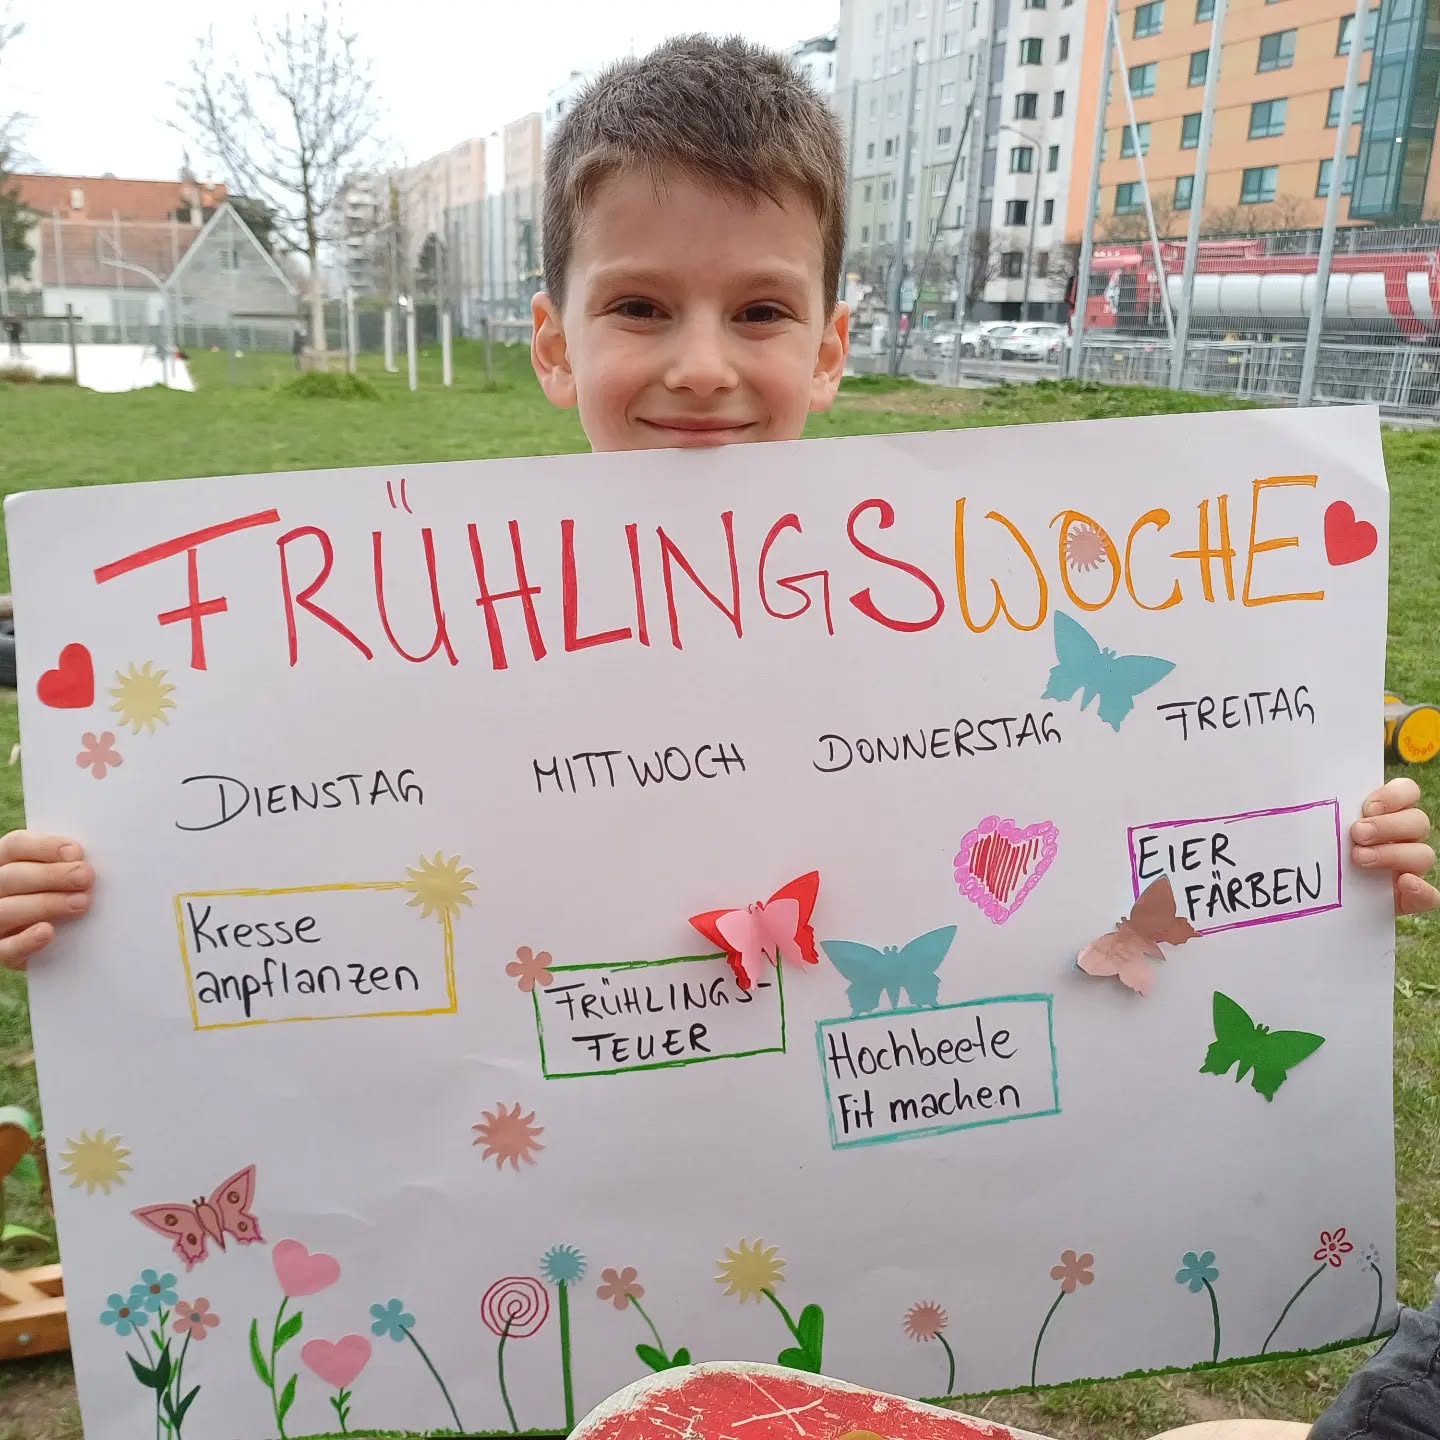 FRÜHLINGSWOCHE
DIENSTAG
MITTWOCH
DONNERSTAG
FREITAG
Kresse
anpflanzen
FRÜHLINGS-
FEUER
Hochbeete
Fit machen
EIER
FÄRBEN